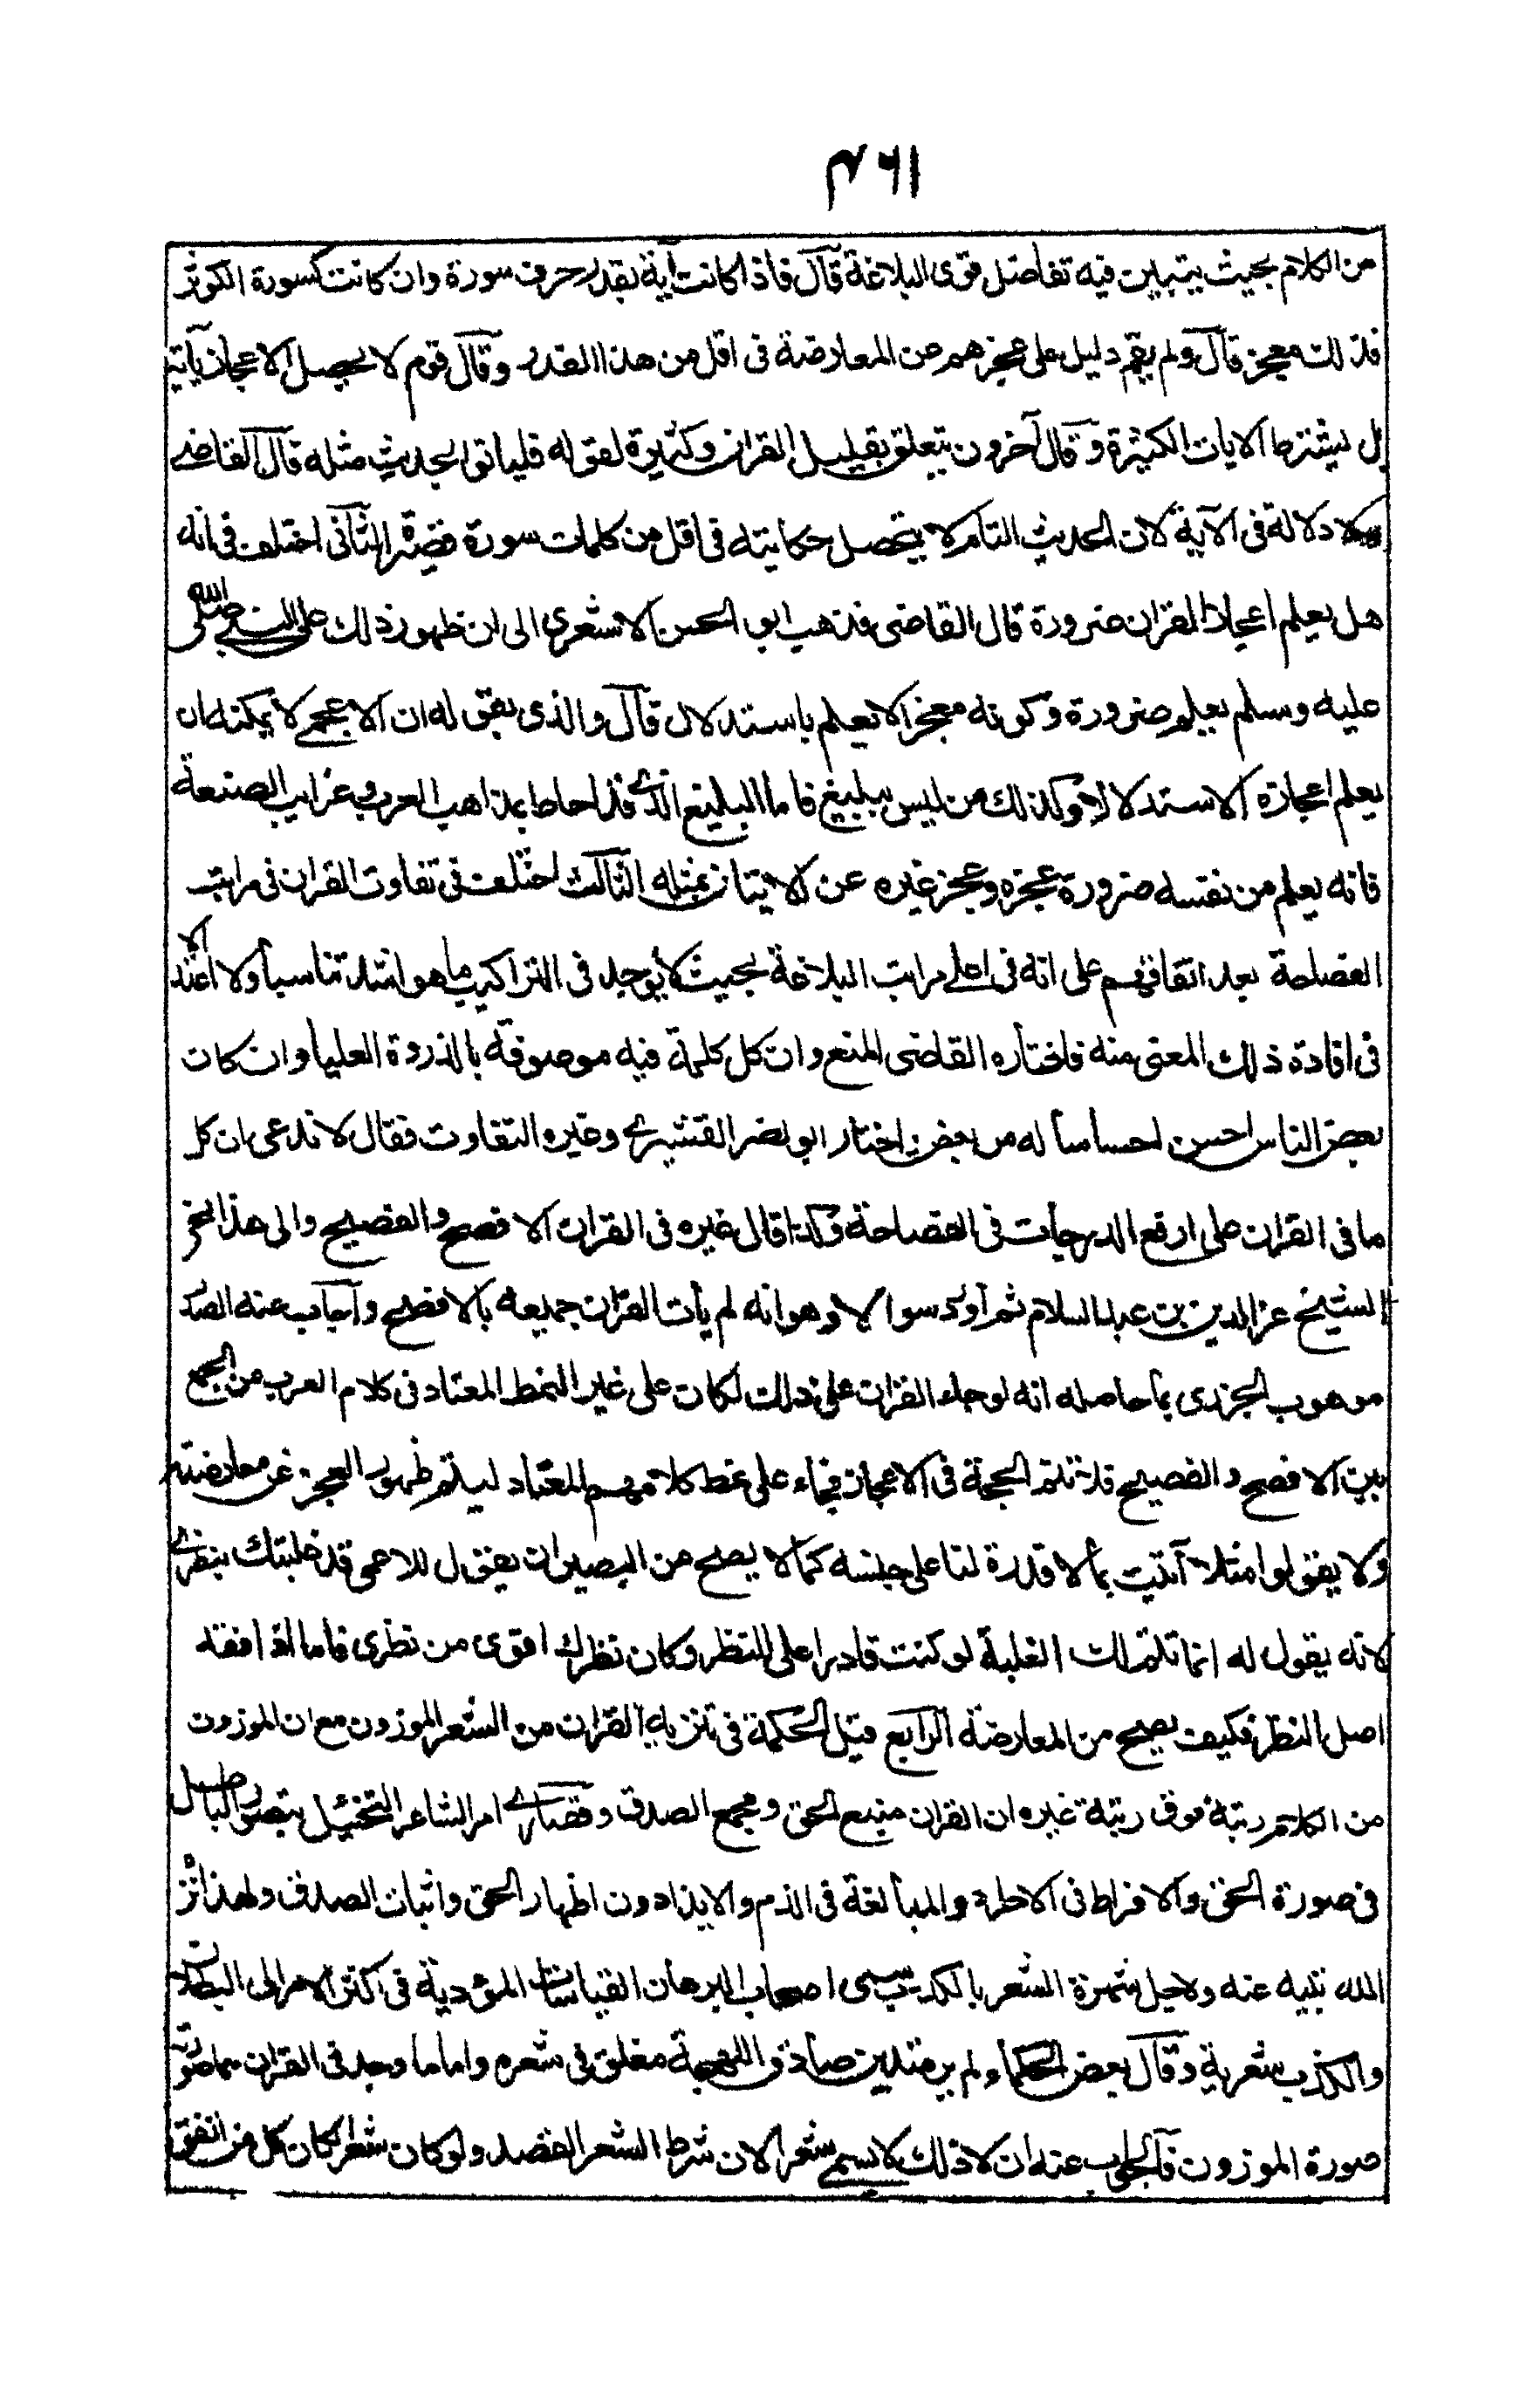 ٤٦١
من الكلام بحيث يتبين فيه تفاضل قوى البلاغة قال فاذا كانت آية بقدر حرف سورة وان كانت كسورة الكوثر
فذلك معجز قال ولم يقم دليل على عجزهم عن المعارضة فى اقل من هذا القدر وقال قوم لا يحصل الاعجاز بآية
بل يشترط الايات الكثيرة وقال آخرون يتعلق بقليل القران وكثيرة لقوله فلياتوا بحديث مثله قال القاضى
ولا دلالة فى الآية لان الحديث التام لا يتحصل حكايته فى اقل من كلمات سورة قصيرة الثانى اختلف فى انه
هل يعلم اعجاز القران ضرورة قال القاضى فذهب ابو الحسن الاشعرى الى ان ظهور ذلك على النبى صلى الله
عليه وسلم يعلم ضرورة وكونه معجزا لا يعلم باستدلال قال والذى يقوله ان الاعجمى لا يمكنه ان
يعلم اعجازه الا استدلالا وكذلك من ليس ببليغ فاما البليغ الذى قد احاط بمذاهب العرب وغرايب الصنعة
فانه يعلم من نفسه ضرورة عجزه وعجز غيره عن الايتان بمثله الثالث اختلف فى تفاوت القران فى مراتب
الفصاحة بعد اتفاقهم على انه فى اعلى مراتب البلاغة بحيث لا يوجد فى التراكيب ما هو اشد تناسبا ولا اعتدالا
فى افادة ذلك المعنى منه فاختاره القاضى المنع وان كل كلمة فيه موصوفة بالذروة العليا وان كان
بعض الناس احسن احساسا له من بعض اختار ابو نصر القشيرى وغيره التفاوت فقال لا ندعى ان كل
ما فى القران على ارفع الدرجات فى الفصاحة وكذا قال غيره فى القران الافصح والفصيح والى هذا نحى
الشيخ عز الدين بن عبد السلام ثم اورد سوالا وهو انه لم يأت القران جميعه بالافصح واجاب عنه الصدر
موهوب الجزرى بما حاصله انه لو جاء القران على ذلك لكان على غير النمط المعتاد فى كلام العرب من الجمع
بين الافصح والفصيح فلا تتم الحجة فى الاعجاز فجاء على نمط كلامهم المعتاد ليتم ظهور العجز عن معارضته
ولا يقولوا مثلا آتيت بما لا قدرة لنا على جنسه كما لا يصح من البصير ان يقول للاعمى قد غلبتك بنظرى
لانه يقول له انما تتم لك الغلبة لو كنت قادرا على النظر وكان نظرك اقوى من نظرى فاما اذا فقد
اصل النظر فكيف يصح من المعارضة الرابع قيل الحكمة فى تنزيه القران من الشعر الموزون مع ان الموزون
من الكلام رتبة فوق رتبة غيره ان القران منبع الحق ومجمع الصدق وقصارى امر الشاعر التخييل بتصور الباطل
فى صورة الحق والافراط فى الاطراء والمبالغة فى الذم والايذاء دون اظهار الحق واثبات الصدق ولهذا نزه
الله نبيه عنه ولاجل شهرة الشعر بالكذب سمى اصحاب البرهان القياسات المؤدية فى اكثر الامر الى البطلان
والكذب شعرية وقال بعض الحكماء لم ير متدين صادق اللهجة مفلق فى شعره واما ما وجد فى القران مما صورته
صورة الموزون فالجواب عنه ان ذلك لا يسمى شعرا لان شرط الشعر القصد ولو كان شعرا لكان كل من اتفق